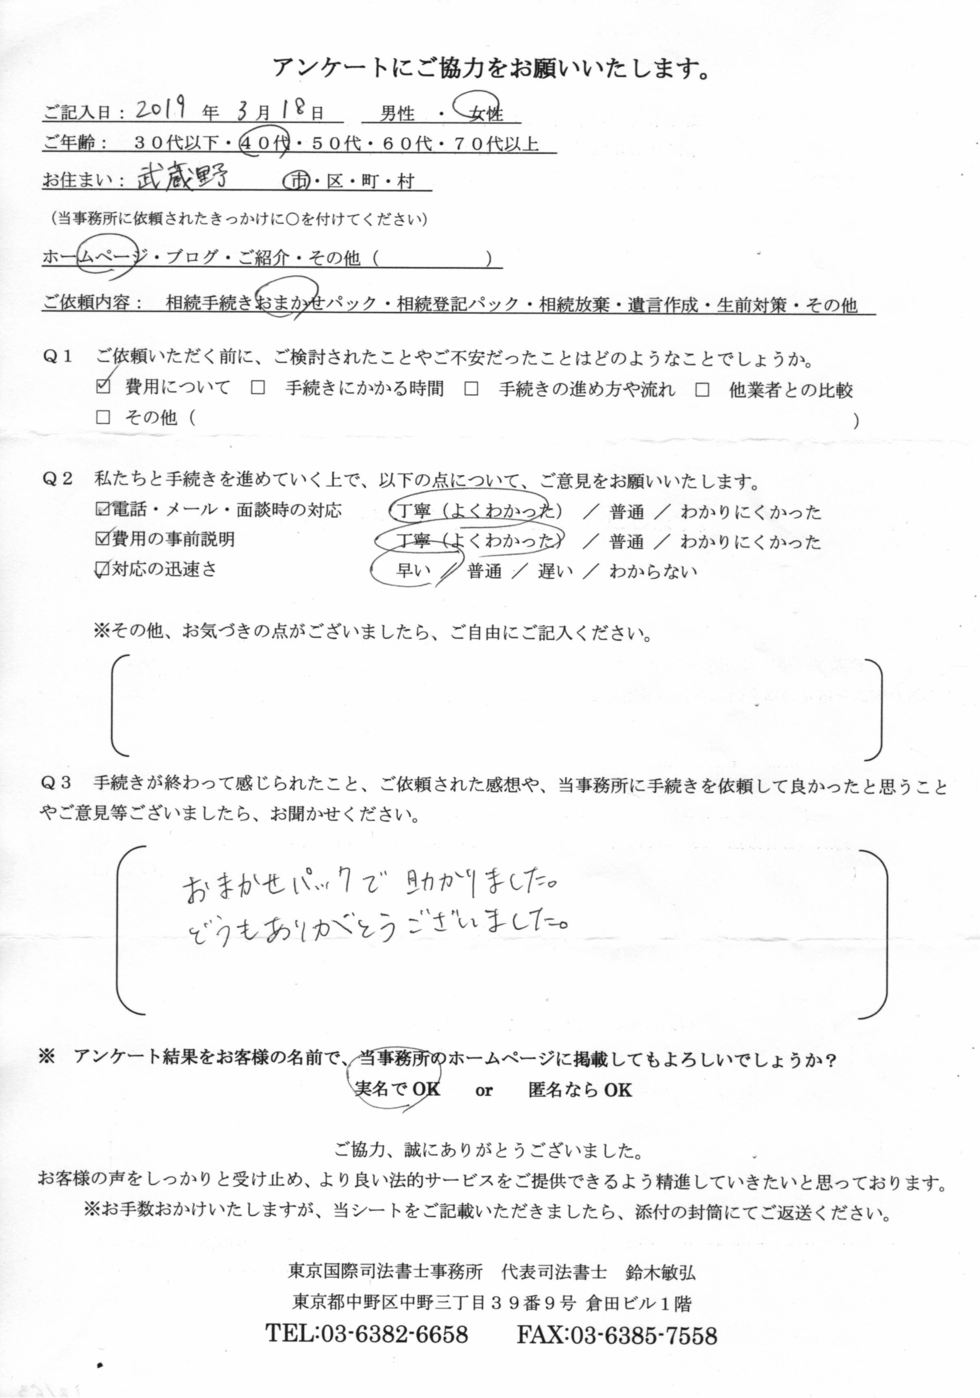 アンケートにご協力をお願いいたします。
ご記入日：2019 年 3月 18日　男性　・　女性
ご年齢：　３０代以下・４０代・５０代・６０代・７０代以上
お住まい：武蔵野　市・区・町・村
（当事務所に依頼されたきっかけに○を付けてください）
ホームページ・ブログ・ご紹介・その他（　　　　　　）
ご依頼内容：　相続手続きおまかせパック・相続登記パック・相続放棄・遺言作成・生前対策・その他
Ｑ１　ご依頼いただく前に、ご検討されたことやご不安だったことはどのようなことでしょうか。
☑ 費用について　□　手続きにかかる時間　□　手続きの進め方や流れ　□　他業者との比較
□ その他（　　　　　　　　　　　　　　　　　　　　　　　　）
Ｑ２　私たちと手続きを進めていく上で、以下の点について、ご意見をお願いいたします。
☑電話・メール・面談時の対応　　丁寧（よくわかった）　／　普通　／　わかりにくかった
☑費用の事前説明　　丁寧（よくわかった）　／　普通　／　わかりにくかった
☑対応の迅速さ　　早い　／　普通　／　遅い　／　わからない
※その他、お気づきの点がございましたら、ご自由にご記入ください。
Ｑ３　手続きが終わって感じられたこと、ご依頼された感想や、当事務所に手続きを依頼して良かったと思うこと
やご意見等ございましたら、お聞かせください。
おまかせパックで助かりました。
どうもありがとうございました。
※　アンケート結果をお客様の名前で、当事務所のホームページに掲載してもよろしいでしょうか？
実名でOK　or　匿名ならOK
ご協力、誠にありがとうございました。
お客様の声をしっかりと受け止め、より良い法的サービスをご提供できるよう精進していきたいと思っております。
※お手数おかけいたしますが、当シートをご記載いただきましたら、添付の封筒にてご返送ください。
東京国際司法書士事務所　代表司法書士　鈴木敏弘
東京都中野区中野三丁目３９番９号 倉田ビル１階
TEL:03-6382-6658　FAX:03-6385-7558